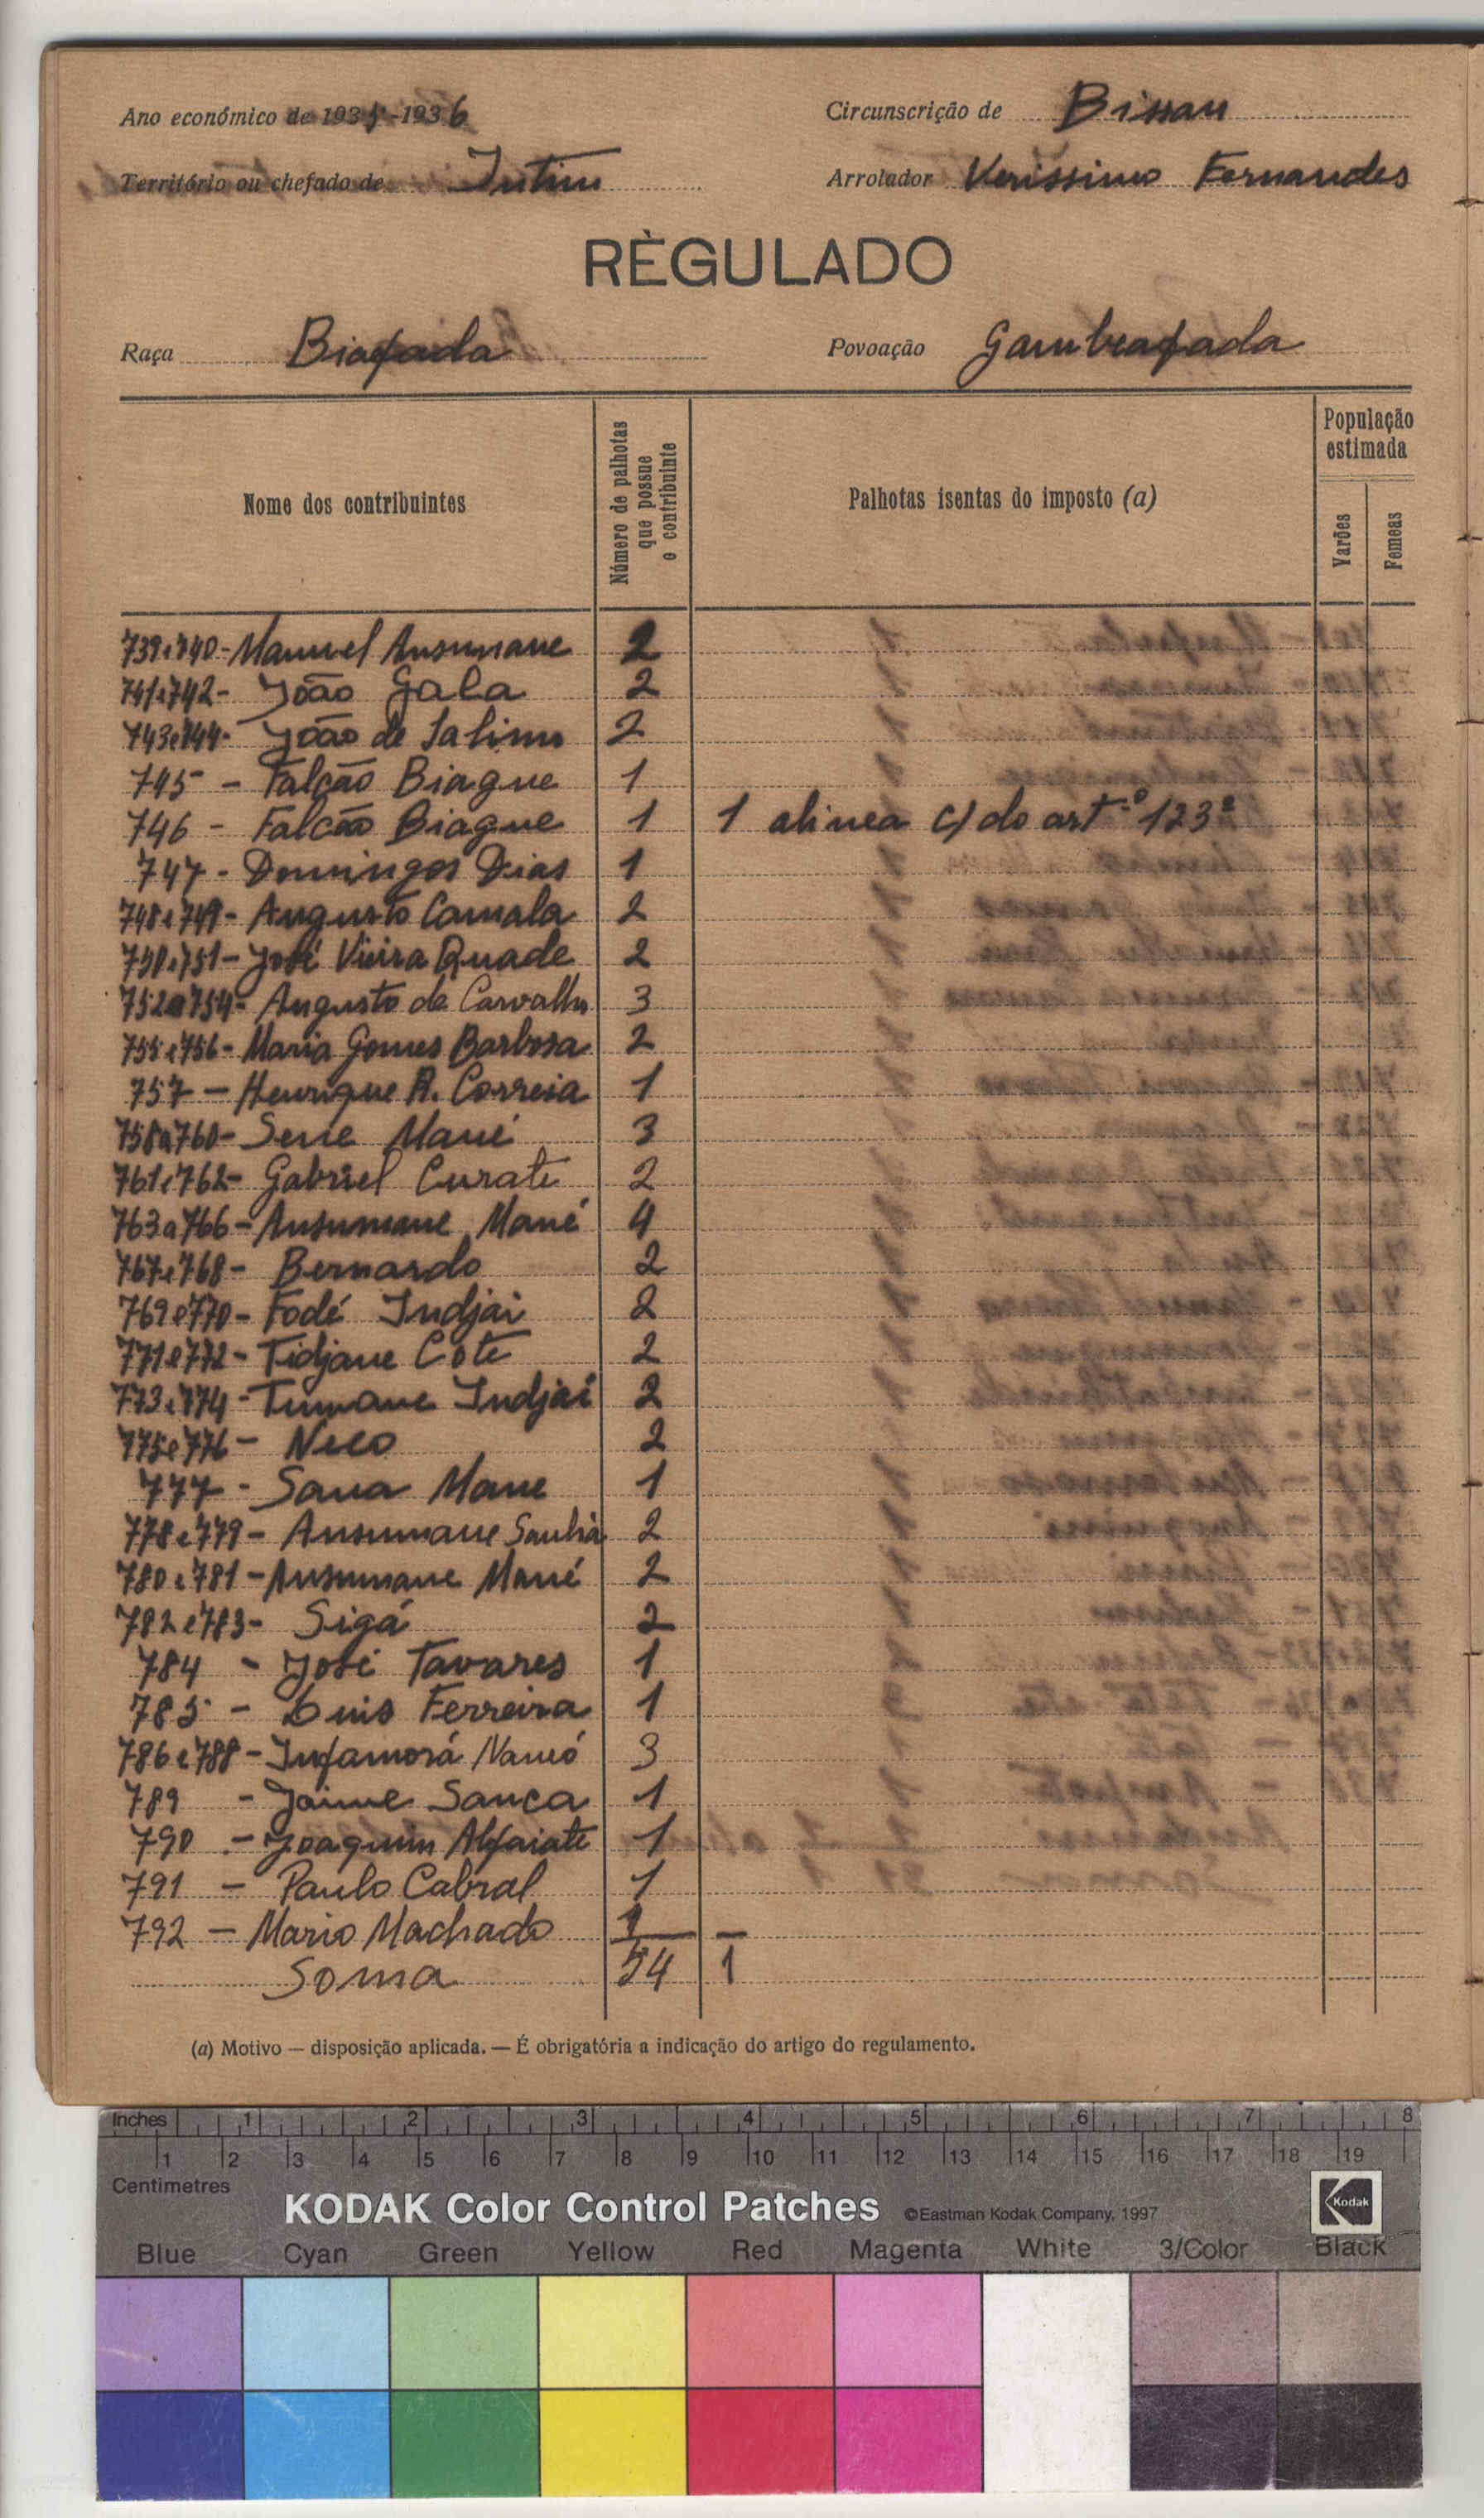 Ano económico de 1935-1936
Circunscrição de Bissau
Território ou chefado de Intim
Arrolador Verissimo Fernandes
RÈGULADO
Raça Biafada
Povoação Gambeafada
Nome dos contribuintes
Número de palhotas que possue o contribuinte
Palhotas isentas do imposto (a)
População estimada
Varões
Femeas
739e740-Manuel Ansumane 2
741e742- João Gala 2
743e744- João de Salimo 2
745 - Falcão Biague 1
746 - Falcão Biague 1 1 alinea c) do art.º 123º
747- Domingos Dias 1
748e749- Augusto Camala 2
750e751- José Vieira Quade 2
752a754- Augusto de Carvalho 3
755e756- Maria Gomes Barbosa 2
757 - Henrique A. Correia 1
758a760- Sene Mané 3
761e762- Gabriel Curate 2
763a766- Ansumane Mané 4
767e768- Bernardo 2
769e770- Fodé Indjai 2
771e772- Tidjane Cote 2
773e774- Tumane Indjai 2
775e776- Neco 2
777 - Sana Mane 1
778e779- Ansumane Sanhá 2
780e781- Ansumane Mané 2
782e783- Sigá 2
784 - José Tavares 1
785 - Luis Ferreira 1
786e788- Infamorá Namó 3
789 - Jaime Sanca 1
790 - Joaquim Alfaiate 1
791 - Paulo Cabral 1
792 - Mario Machado 1
Soma 54 1
(a) Motivo — disposição aplicada. — É obrigatória a indicação do artigo do regulamento.
Inches 1 2 3 4 5 6 7 8
1 2 3 4 5 6 7 8 9 10 11 12 13 14 15 16 17 18 19
Centimetres
KODAK Color Control Patches ©Eastman Kodak Company, 1997 Kodak
Blue Cyan Green Yellow Red Magenta White 3/Color Black